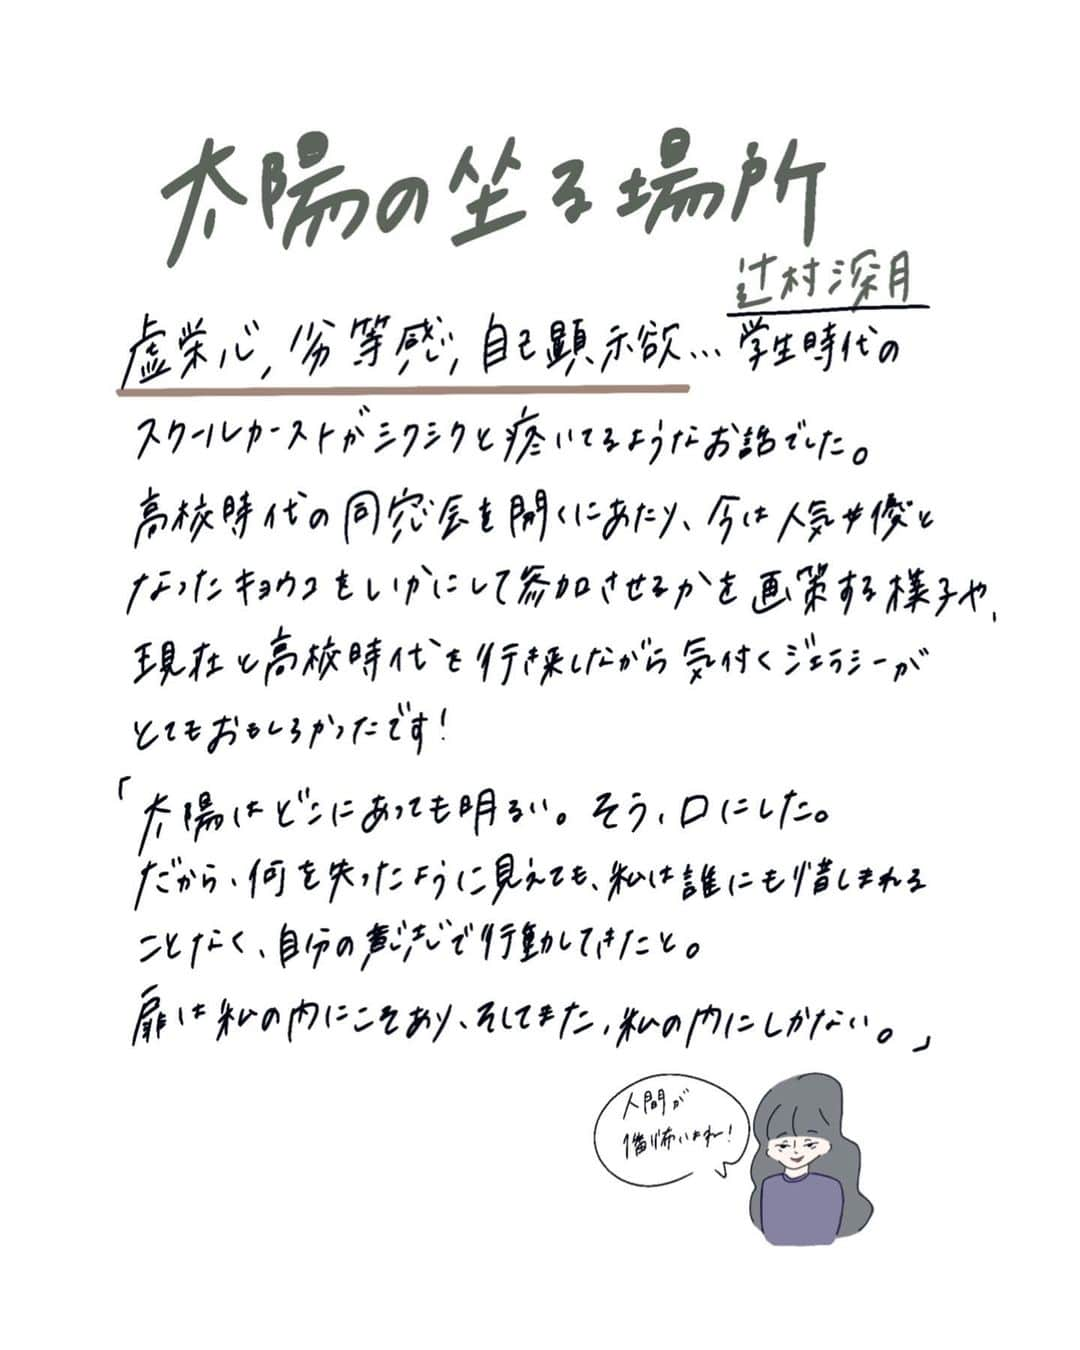 太陽の坐る場所
辻村深月
虚栄心,劣等感,自己顕示欲...学生時代の
スクールカーストがミクシクと疼いてるようなお話でした。
高校時代の同窓会を開くにあたり、今は人気女優と
なったキョウコをいかにして参加させるかを画策する様子や、
現在と高校時代を行き来しながら気付くジェラシーが
とてもおもしろかったです!
「太陽はどこにあっても明るい。そう、口にした。
だから、何を失ったように見えても、私は誰にも惜しまれる
ことなく、自分の意志で行動してきたと。
扉は私の内にこそあり、そしてまた、私の内にしかない。」
人間が
1番怖いよねー!